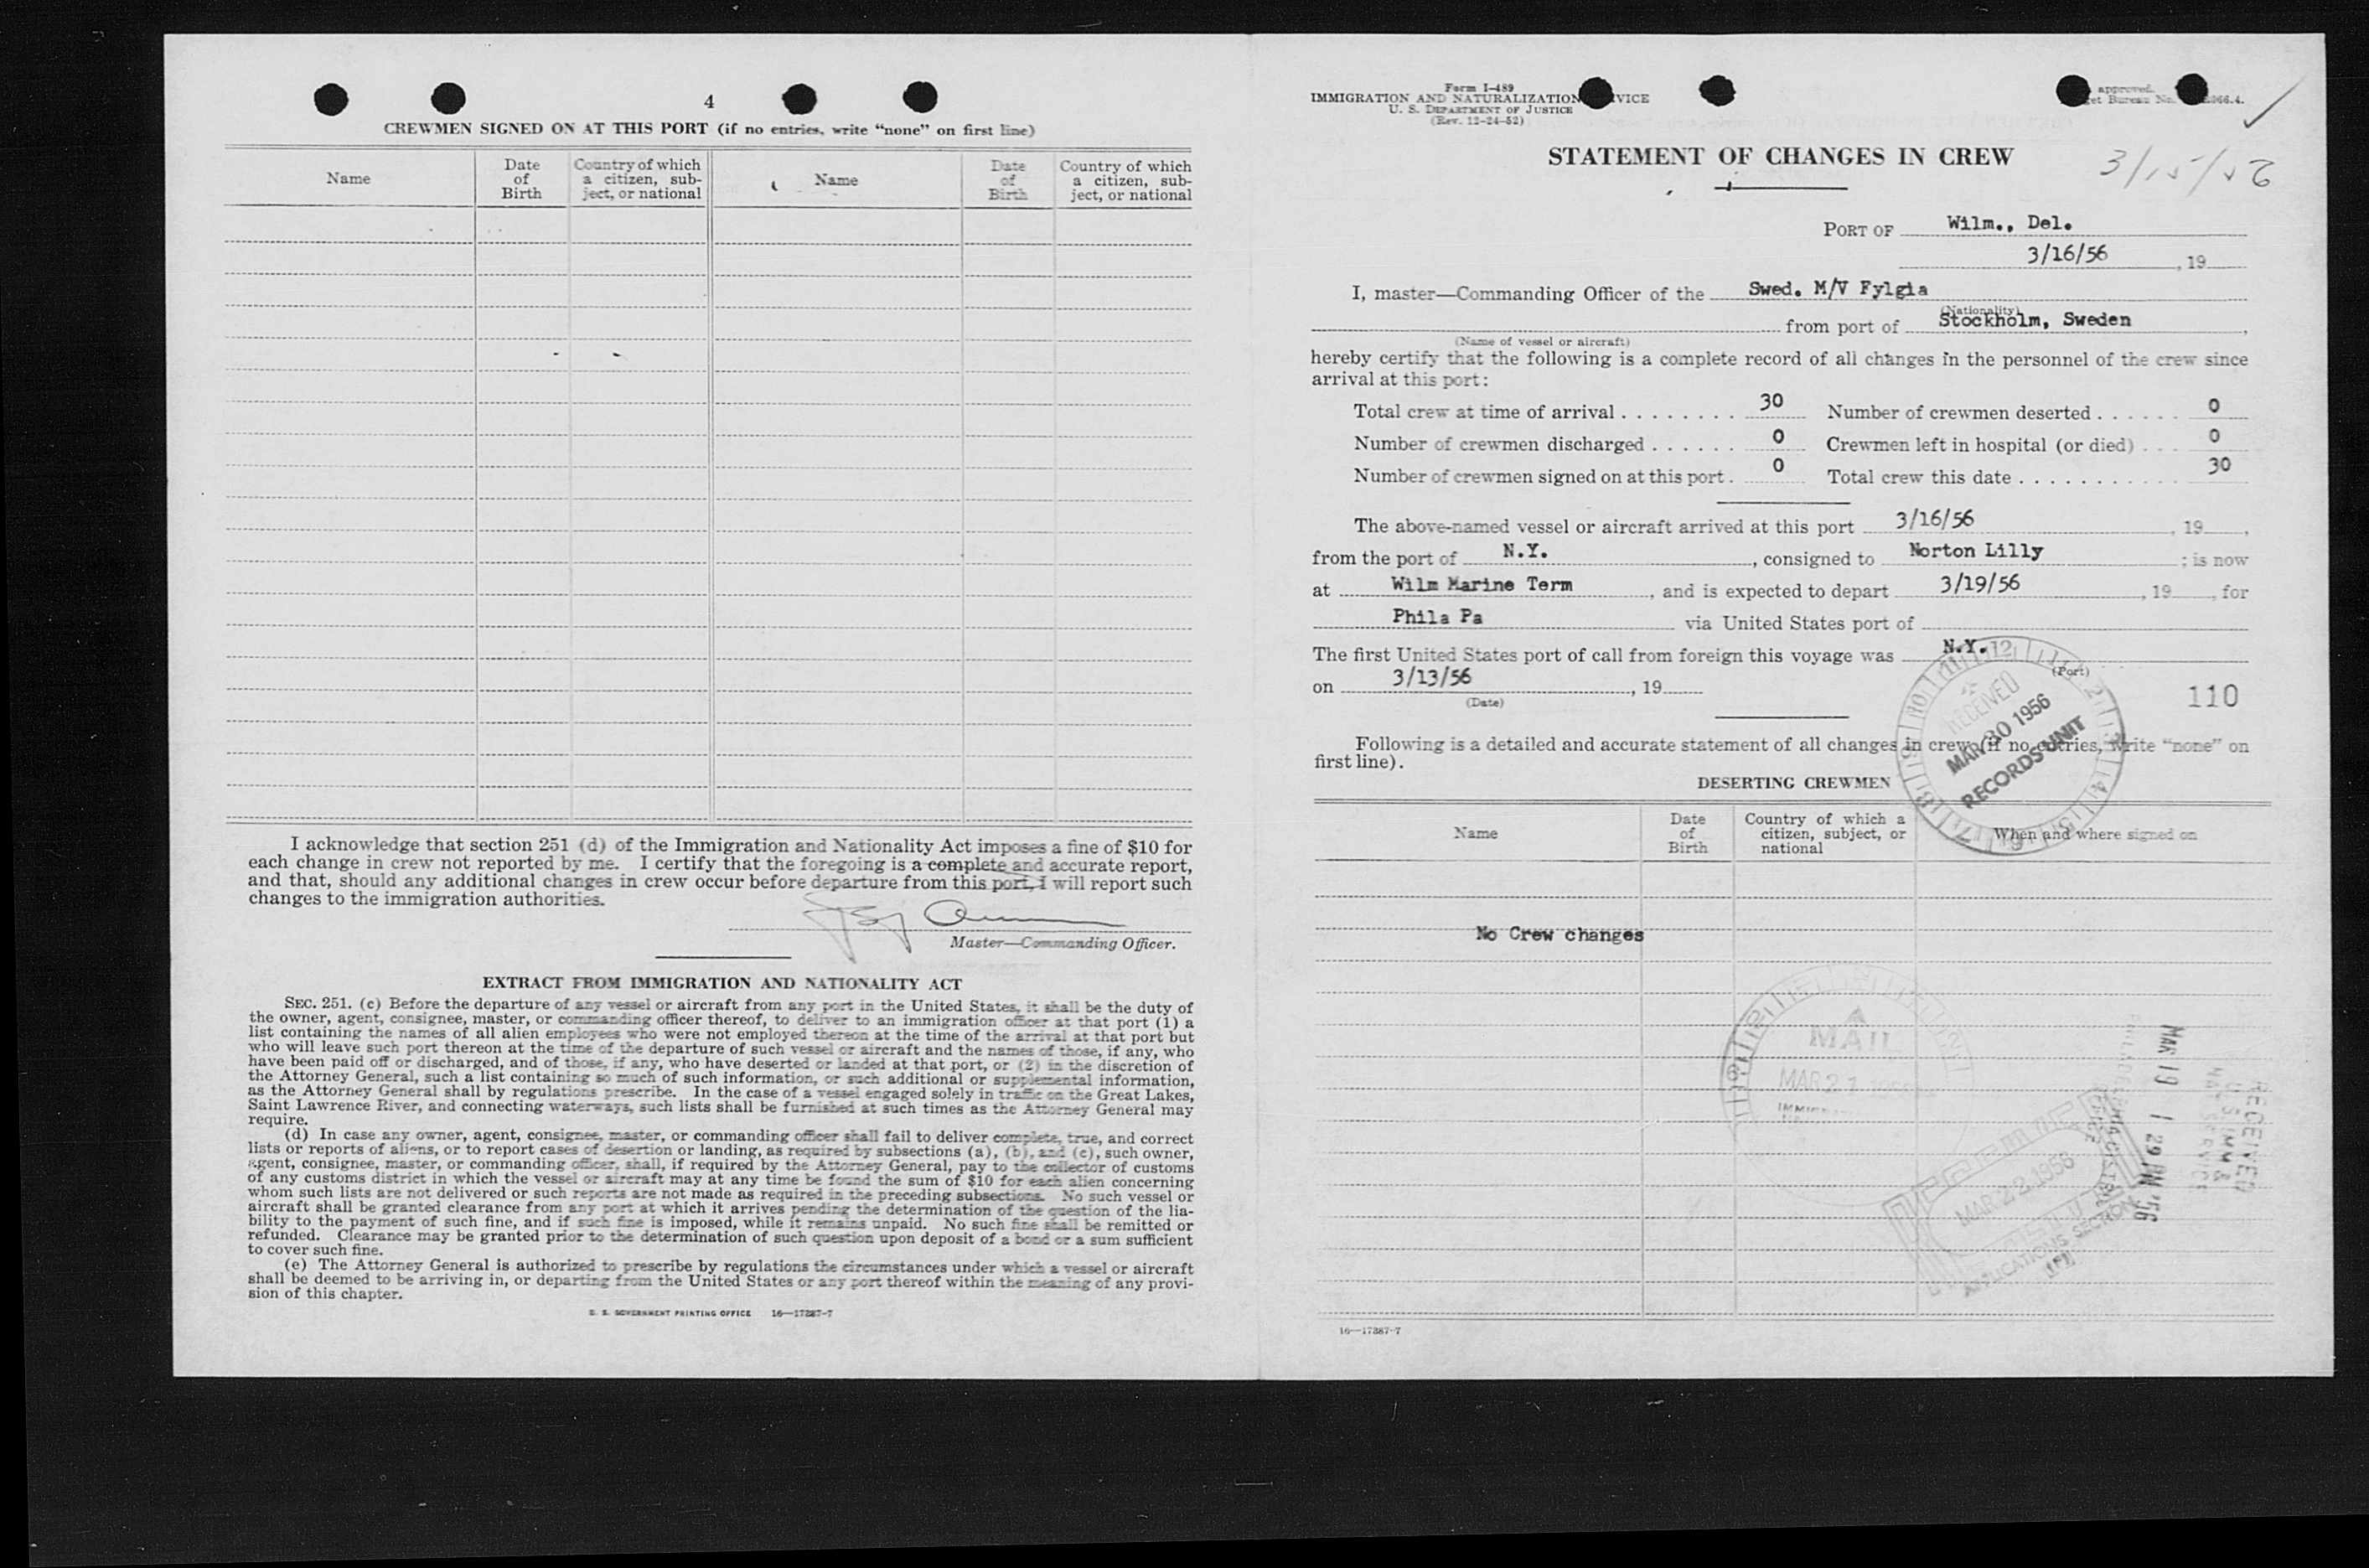 4
CREWMEN SIGNED ON AT THIS PORT (if no entries, write “none” on first line)
Name
Date of Birth
Country of which a citizen, subject, or national
Name
Date of Birth
Country of which a citizen, subject, or national
I acknowledge that section 251 (d) of the Immigration and Nationality Act imposes a fine of $10 for
each change in crew not reported by me. I certify that the foregoing is a complete and accurate report,
and that, should any additional changes in crew occur before departure from this port, I will report such
changes to the immigration authorities.
Master—Commanding Officer.
EXTRACT FROM IMMIGRATION AND NATIONALITY ACT
SEC. 251. (c) Before the departure of any vessel or aircraft from any port in the United States, it shall be the duty of
the owner, agent, consignee, master, or commanding officer thereof, to deliver to an immigration officer at that port (1) a
list containing the names of all alien employees who were not employed thereon at the time of the arrival at that port but
who will leave such port thereon at the time of the departure of such vessel or aircraft and the names of those, if any, who
have been paid off or discharged, and of those, if any, who have deserted or landed at that port, or (2) in the discretion of
the Attorney General, such a list containing so much of such information, or such additional or supplemental information,
as the Attorney General shall by regulations prescribe. In the case of a vessel engaged solely in traffic on the Great Lakes,
Saint Lawrence River, and connecting waterways, such lists shall be furnished at such times as the Attorney General may
require.
(d) In case any owner, agent, consignee, master, or commanding officer shall fail to deliver complete, true, and correct
lists or reports of aliens, or to report cases of desertion or landing, as required by subsections (a), (b), and (c), such owner,
agent, consignee, master, or commanding officer, shall, if required by the Attorney General, pay to the collector of customs
of any customs district in which the vessel or aircraft may at any time be found the sum of $10 for each alien concerning
whom such lists are not delivered or such reports are not made as required in the preceding subsections. No such vessel or
aircraft shall be granted clearance from any port at which it arrives pending the determination of the question of the lia-
bility to the payment of such fine, and if such fine is imposed, while it remains unpaid. No such fine shall be remitted or
refunded. Clearance may be granted prior to the determination of such question upon deposit of a bond or a sum sufficient
to cover such fine.
(e) The Attorney General is authorized to prescribe by regulations the circumstances under which a vessel or aircraft
shall be deemed to be arriving in, or departing from the United States or any port thereof within the meaning of any provi-
sion of this chapter.
U. S. GOVERNMENT PRINTING OFFICE 16—17387-7
Form I-489
IMMIGRATION AND NATURALIZATION VICE
U. S. DEPARTMENT OF JUSTICE
(Rev. 12-24-52)
approved.
et Bureau No. 066.4.
STATEMENT OF CHANGES IN CREW
3/15/56
PORT OF Wilm., Del.
3/16/56, 19
I, master—Commanding Officer of the Swed. M/V Fylgia
(Nationality)
from port of Stockholm, Sweden,
(Name of vessel or aircraft)
hereby certify that the following is a complete record of all changes in the personnel of the crew since
arrival at this port:
Total crew at time of arrival . . . . . . . . 30 Number of crewmen deserted . . . . . . 0
Number of crewmen discharged . . . . . . 0 Crewmen left in hospital (or died) . . . 0
Number of crewmen signed on at this port . 0 Total crew this date . . . . . . . . . . . 30
The above-named vessel or aircraft arrived at this port 3/16/56, 19,
from the port of N.Y., consigned to Norton Lilly ; is now
at Wilm Marine Term, and is expected to depart 3/19/56, 19, for
Phila Pa via United States port of
The first United States port of call from foreign this voyage was N.Y.
(Port)
on 3/13/56, 19
(Date)
110
RECEIVED
MAR 30 1956
RECORDS UNIT
Following is a detailed and accurate statement of all changes in crew (if no entries, write “none” on
first line).
DESERTING CREWMEN
Name
Date of Birth
Country of which a citizen, subject, or national
When and where signed on
No Crew changes
MAIL
MAR 21
MAR 19 1 29 PM '56
RECEIVED
U S IMM &
NAT SERVICE
MAR 22 1956
APPLICATIONS SECTION
16—17387-7